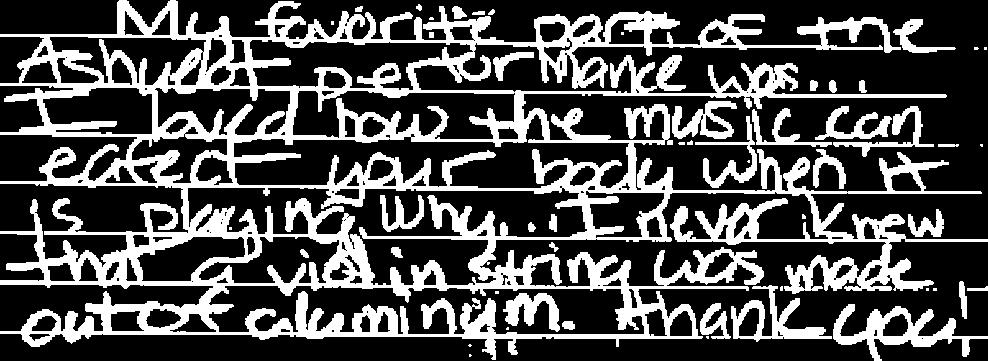 My favorite part of the
Ashuelot performance was...
I loved how the music can
eafect your body when it
is playing why... I never knew
that a violin string was made
out of aluminum. thank you!